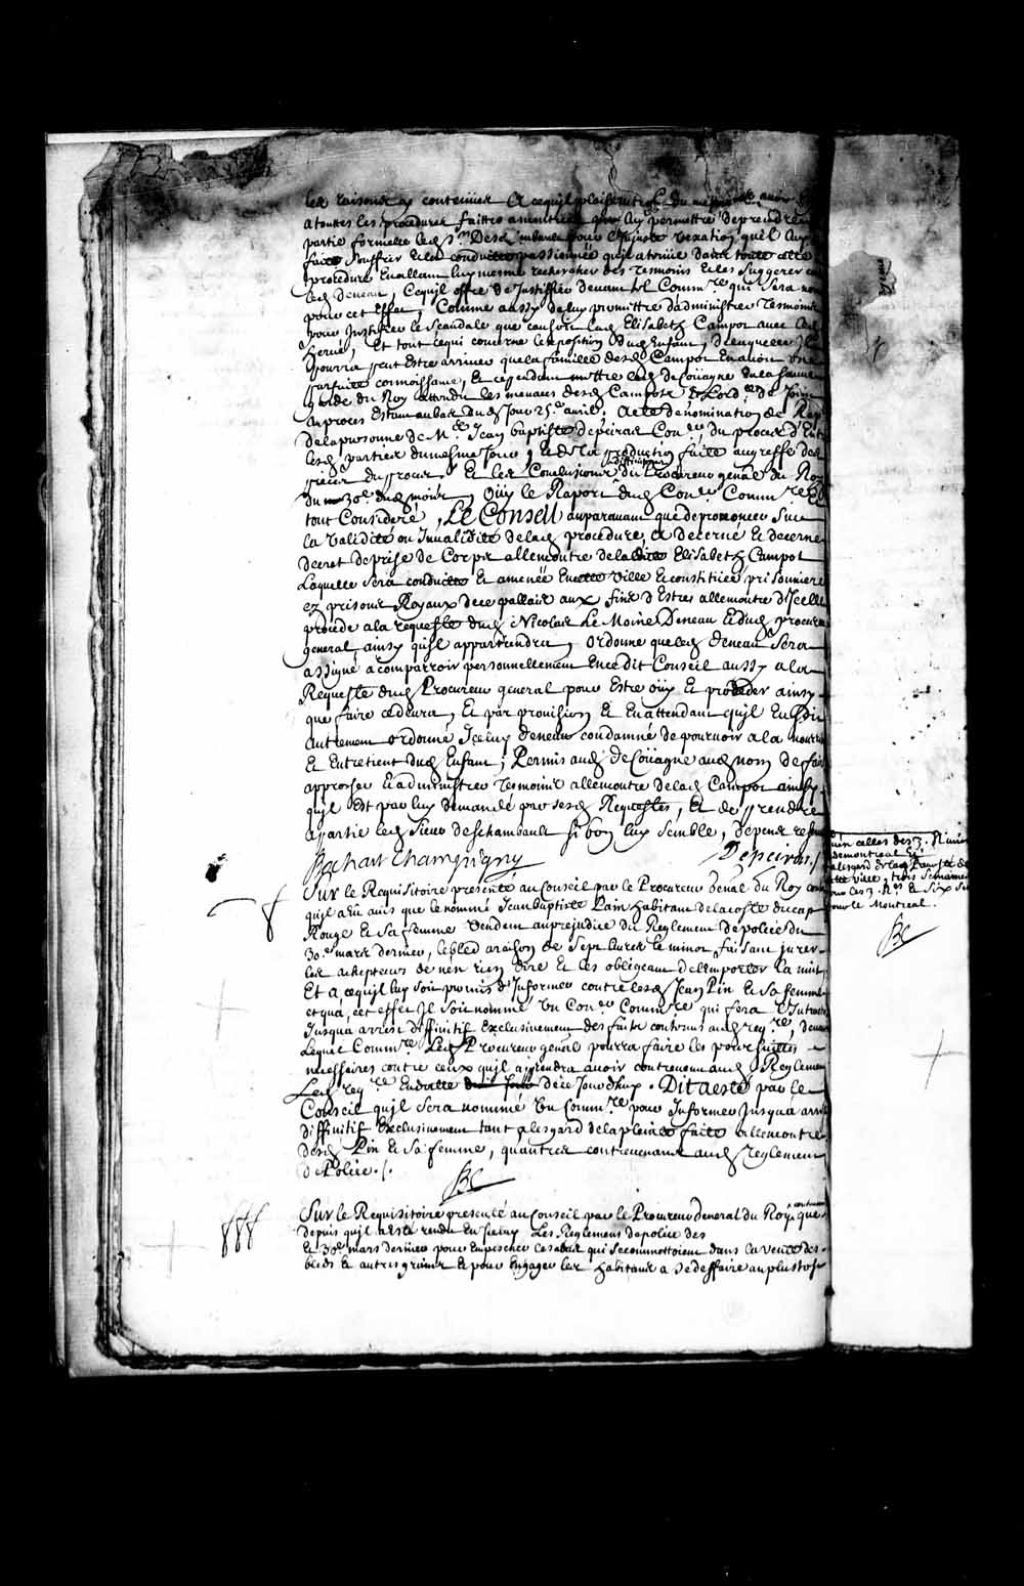 les raisons y contenues A cequil plaise
a toutes les procedures faittes luy permettre deprendre
partie formelle led. Sr. Desch pour l'Injuste vexation quil luy
faitte souffrir Et la conduitte passionnée quil a tenüe dans toute cette
procedure En allant luy mesme rechercher des Tesmoins Et les suggerer
led. deneau, Cequil offre de Justiffier devant tel Commre. qui sera
pour cet Effet, Comme aussy de luy permettre dadministrer Tesmoins
pour Justifier le scandale que causoit lad. Elisabeth Campot avec led.
herué, Et tout cequi concerne l'exposition dud. Enfant, de laquelle Il
pourra peut Estre arriver que la famille desd. Campot En avoit une
parfaite connoissance, Et cependant mettre led. de Coüagne En la sauue
garde du Roy attendu les menaces desd. Campots, Lordce. de
au procez Estant au bas dud. Jour 25e. avril. Acte de nomination de
de la personne de Me. Jean baptiste depeiras Coner. du procez d'Entre
lesd. parties du mesme Jour, Et de la production faite au greffe des
pieces du procez Et les Conclusions diffinitives du Procureur genal du Roy
du 30e. dud. mois, Oüy le Raport dud. Coner. Commre.
tout Consideré, Le Conseil auparavant que de prononcer Sur
la validité ou Invalidité de lad. procedure, a decerné Et decerne
decret de prise de Corps allencontre de ladite Elisabeth Campot
Laquelle sera conduitte Et amenée En cette ville Et constitüée prisonniere
ez prisons Royaux de ce pallais aux fins d'Estre allencontre d'Icelle
procedé a la requeste dud. Nicolas Le Moine Deneau Et dud. procureur
general, ainsy quil appartiendra, ordonne que led. deneau Sera
assigné a comparroir personnellement En ce dit Conseil aussy a la
Requeste dud. Procureur general pour Estre oüy Et proceder ainsy
que faire ce devra, Et par provision Et En attendant quil En soit
autrement ordonné Iceluy deneau condamné de pourvoir a la nourrit
Et Entretient dud. Enfant, Permis aud. de Coüagne aud. nom de faire
approcher Et administrer Tesmoins allencontre de lad. Campot ainsy
quil Est par luy demandé par sesd. Requestes, Et de prendre
a partie led. Sieur deschambault si bon luy semble, depens
Bochart Champigny Depeiras
Sur le Requisitoire presenté au Conseil par le Procureur Genal du Roy
quil a Eu avis que le nommé Jean baptiste Pain habitant de la coste du cap
Rouge Et Sa femme vendent au prejudice du Reglement de police du
30e. mars dernier, le bled a raison de sept livres le minot faisant jurer
les achepteurs de n'en rien dire Et les obligeant de l'emporter la nuit
Et a cequil luy soit permis d'Informer contre lesd. Jean Pin Et Sa femme
et qu'a cet effet Il soit nommé Un Coner. Commre. qui fera l'Instruction
Jusqua arrest diffinitif Exclusivement des faits contenus aud. reqre., devant
Lequel Commre. Led. Procureur genal pourra faire les poursuittes
necessaires contre ceux quil aprendra avoir contrevenu aud. Reglement
Led. reqre. En datte de ce Jourdhuy. Dit a esté par le
Conseil quil sera nommé Un Commre. pour Informer Jusqua arrest
diffinitif Exclusivement tant a l'esgard de la plainte faite allencontre
desd. Pin Et Sa femme, qu'autres contrevenans aud. reglement
de Police./.
BC
Sur le Requisitoire presenté au Conseil par le Procureur General du Roy contenant que
depuis quil a esté rendu En Iceluy Les Reglemens de police des
Et 30e. mars dernier pour Empescher les abus qui se commettoient dans la vente des
bleds Et autres grains Et pour Engager les habitans a se deffaire au plustost
celles des 3. Riuie
demontreal Et
a lesgard de lad. Preuosté de
cette ville, trois semaines
pour les 3. Rres. Et Six se
pour le Montreal.
BC